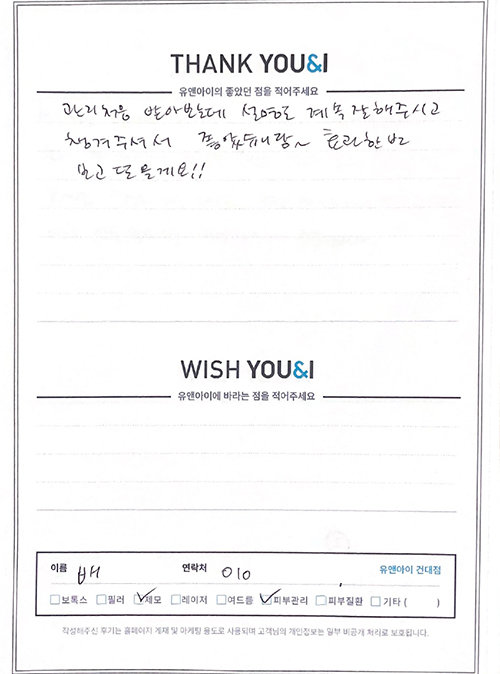 THANK YOU&I
유앤아이의 좋았던 점을 적어주세요
관리처음 받아보는데 설명도 계속 잘해주시고
챙겨주셔서 좋았습니당~ 효과한번
보고 또 올게요!!
WISH YOU&I
유앤아이에 바라는 점을 적어주세요
이름 배 연락처 010 유앤아이 건대점
보톡스 필러 제모 레이저 여드름 피부관리 피부질환 기타 ( )
작성해주신 후기는 홈페이지 게재 및 마케팅 용도로 사용되며 고객님의 개인정보는 일부 비공개 처리로 보호됩니다.